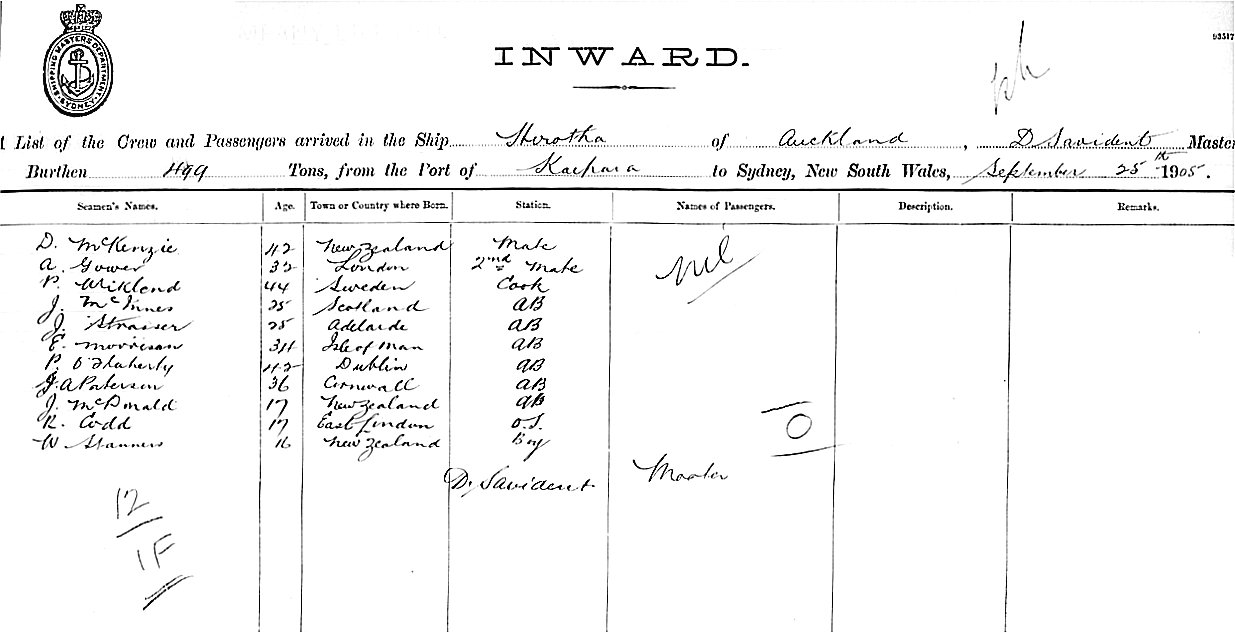 SHIPPING MASTERS DEPARTMENT. SYDNEY
93517
INWARD.
List of the Crew and Passengers arrived in the Ship of Auckland, D Savident Master
Burthen 499 Tons, from the Port of Kaipara to Sydney, New South Wales, September 25th 1905.
Seamen's Names. Age. Town or Country where Born. Station. Names of Passengers. Description. Remarks.
D. McKenzie 42 New Zealand Mate nil
A. Gower 32 London 2nd Mate
P. Wiklond 44 Sweden Cook
J. McInnes 25 Scotland AB
J. Strasser 25 Adelaide AB
E. Morrison 34 Isle of Man AB
P. O'Flaherty 42 Dublin AB
J. A Paterson 36 Cornwall AB
J. McDonald 17 New Zealand AB
R. Codd 17 East London O.S. 0
W Stanners 16 New Zealand Boy
D. Savident Master
12
1F